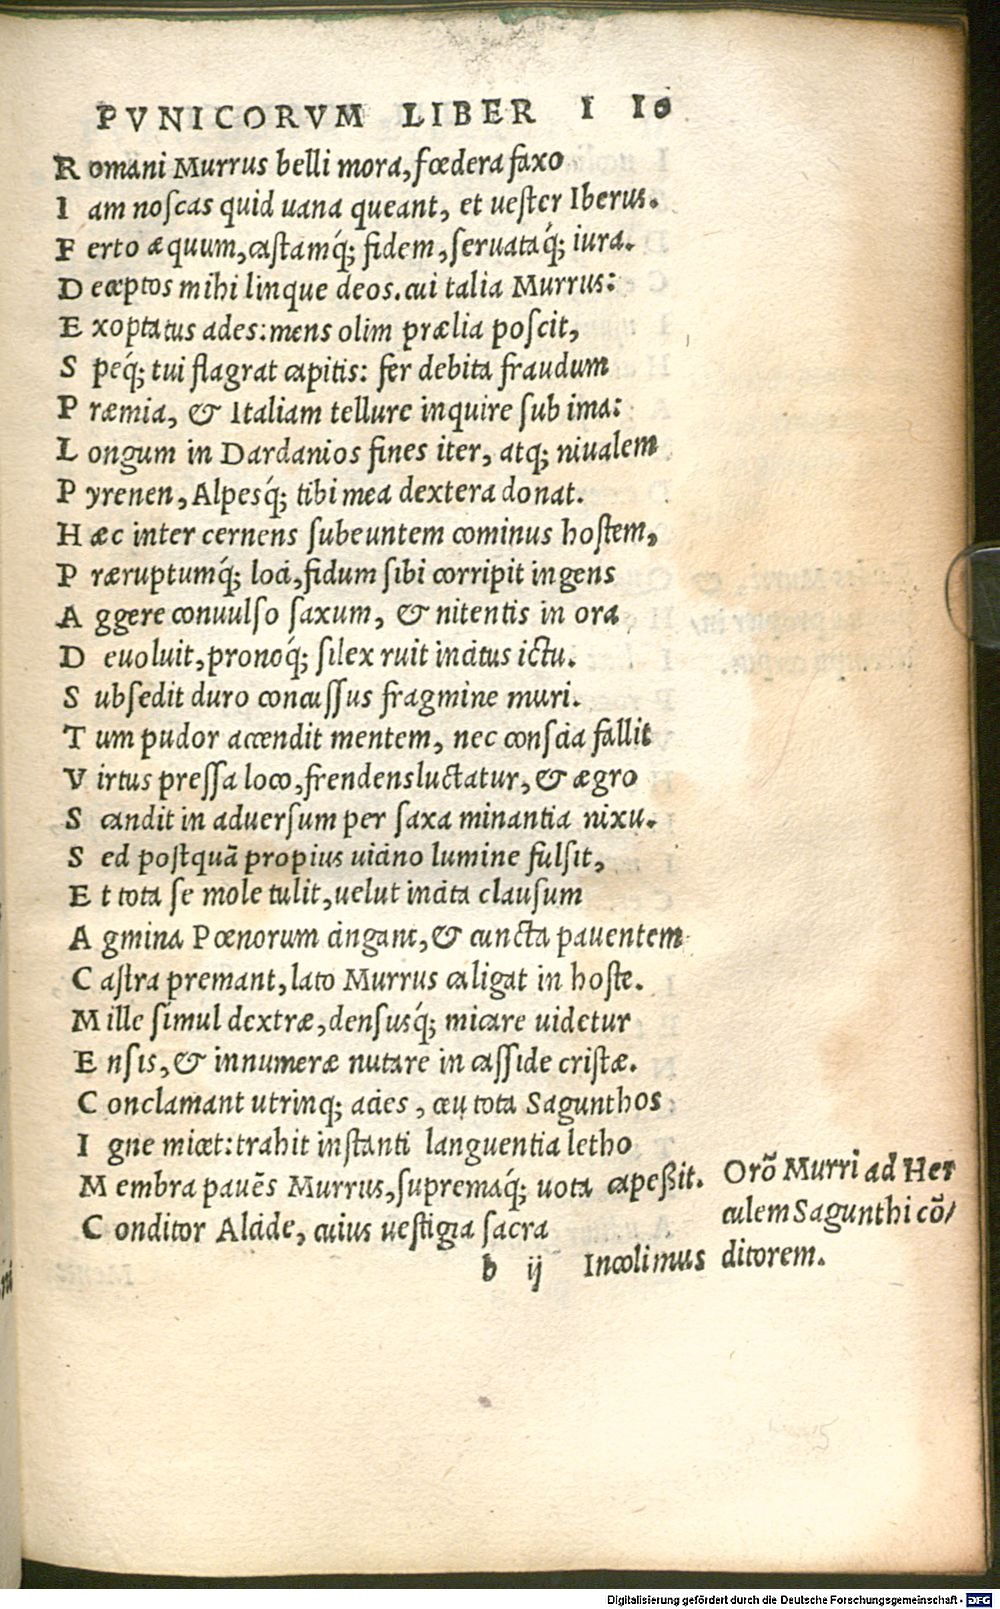 PVNICORVM LIBER I 10
R omani Murrus belli mora, fœdera faxo
I am noſcas quid uana queant, et ueſter Iberus.
F erto æquum, caſtamq́; fidem, ſeruataq́; iura.
D eceptos mihi linque deos. cui talia Murrus:
E xoptatus ades: mens olim prælia poſcit,
S peq́; tui flagrat capitis: fer debita fraudum
P ræmia, & Italiam tellure inquire ſub ima:
L ongum in Dardanios fines iter, atq; niualem
P yrenen, Alpesq́; tibi mea dextera donat.
H æc inter cernens ſubeuntem cominus hoſtem,
P ræruptumq́; loci, fidum ſibi corripit ingens
A ggere conuulſo ſaxum, & nitentis in ora
D euoluit, pronoq́; ſilex ruit incitus ictu.
S ubſedit duro concuſſus fragmine muri.
T um pudor accendit mentem, nec conſcia fallit
V irtus preſſa loco, frendens luctatur, & ægro
S candit in aduerſum per ſaxa minantia nixu.
S ed poſtquã propius uicino lumine fulſit,
E t tota ſe mole tulit, uelut incita clauſum
A gmina Pœnorum cingant, & cuncta pauentem
C aſtra premant, lato Murrus caligat in hoſte.
M ille ſimul dextræ, denſusq́; micare uidetur
E nſis, & innumeræ nutare in caſſide criſtæ.
C onclamant utrinq; acies, ceu tota Sagunthos
I gne micet: trahit inſtanti languentia letho
M embra pauẽs Murrus, ſupremaq́; uota capeßit.
C onditor Alcide, cuius ueſtigia ſacra
b ij Incolimus
Orõ Murri ad Her
culem Sagunthi cõ/
ditorem.
Digitalisierung gefördert durch die Deutsche Forschungsgemeinschaft - DFG